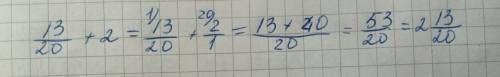 13/20 + 2 = ¹⁾13/20 + ²⁰⁾2/1 = (13 + 40)/20 = 53/20 = 2 13/20